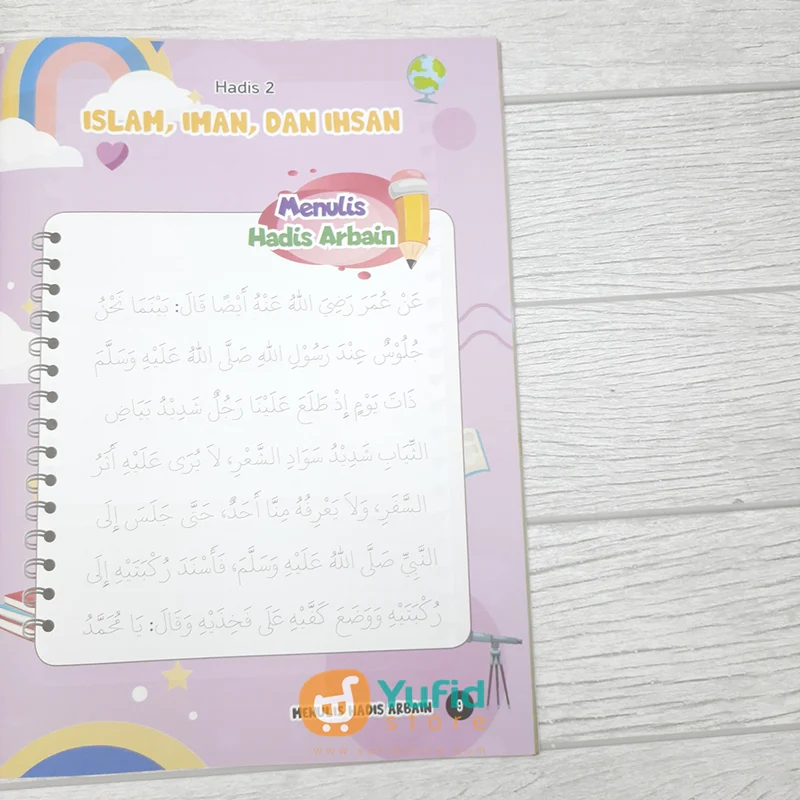 Hadis 2
ISLAM, IMAN, DAN IHSAN
Menulis
Hadis Arbain
عَنْ عُمَرَ رَضِيَ اللهُ عَنْهُ أَيْضًا قَالَ: بَيْنَمَا نَحْنُ
جُلُوْسٌ عِنْدَ رَسُوْلِ اللهِ صَلَّى اللهُ عَلَيْهِ وَسَلَّمَ
ذَاتَ يَوْمٍ إِذْ طَلَعَ عَلَيْنَا رَجُلٌ شَدِيْدُ بَيَاضِ
الثِّيَابِ شَدِيْدُ سَوَادِ الشَّعْرِ، لَا يُرَى عَلَيْهِ أَثَرُ
السَّفَرِ، وَلَا يَعْرِفُهُ مِنَّا أَحَدٌ، حَتَّى جَلَسَ إِلَى
النَّبِيِّ صَلَّى اللهُ عَلَيْهِ وَسَلَّمَ، فَأَسْنَدَ رُكْبَتَيْهِ إِلَى
رُكْبَتَيْهِ وَوَضَعَ كَفَّيْهِ عَلَى فَخِذَيْهِ وَقَالَ: يَا مُحَمَّدُ
MENULIS HADIS ARBAIN 9
Yufid
store